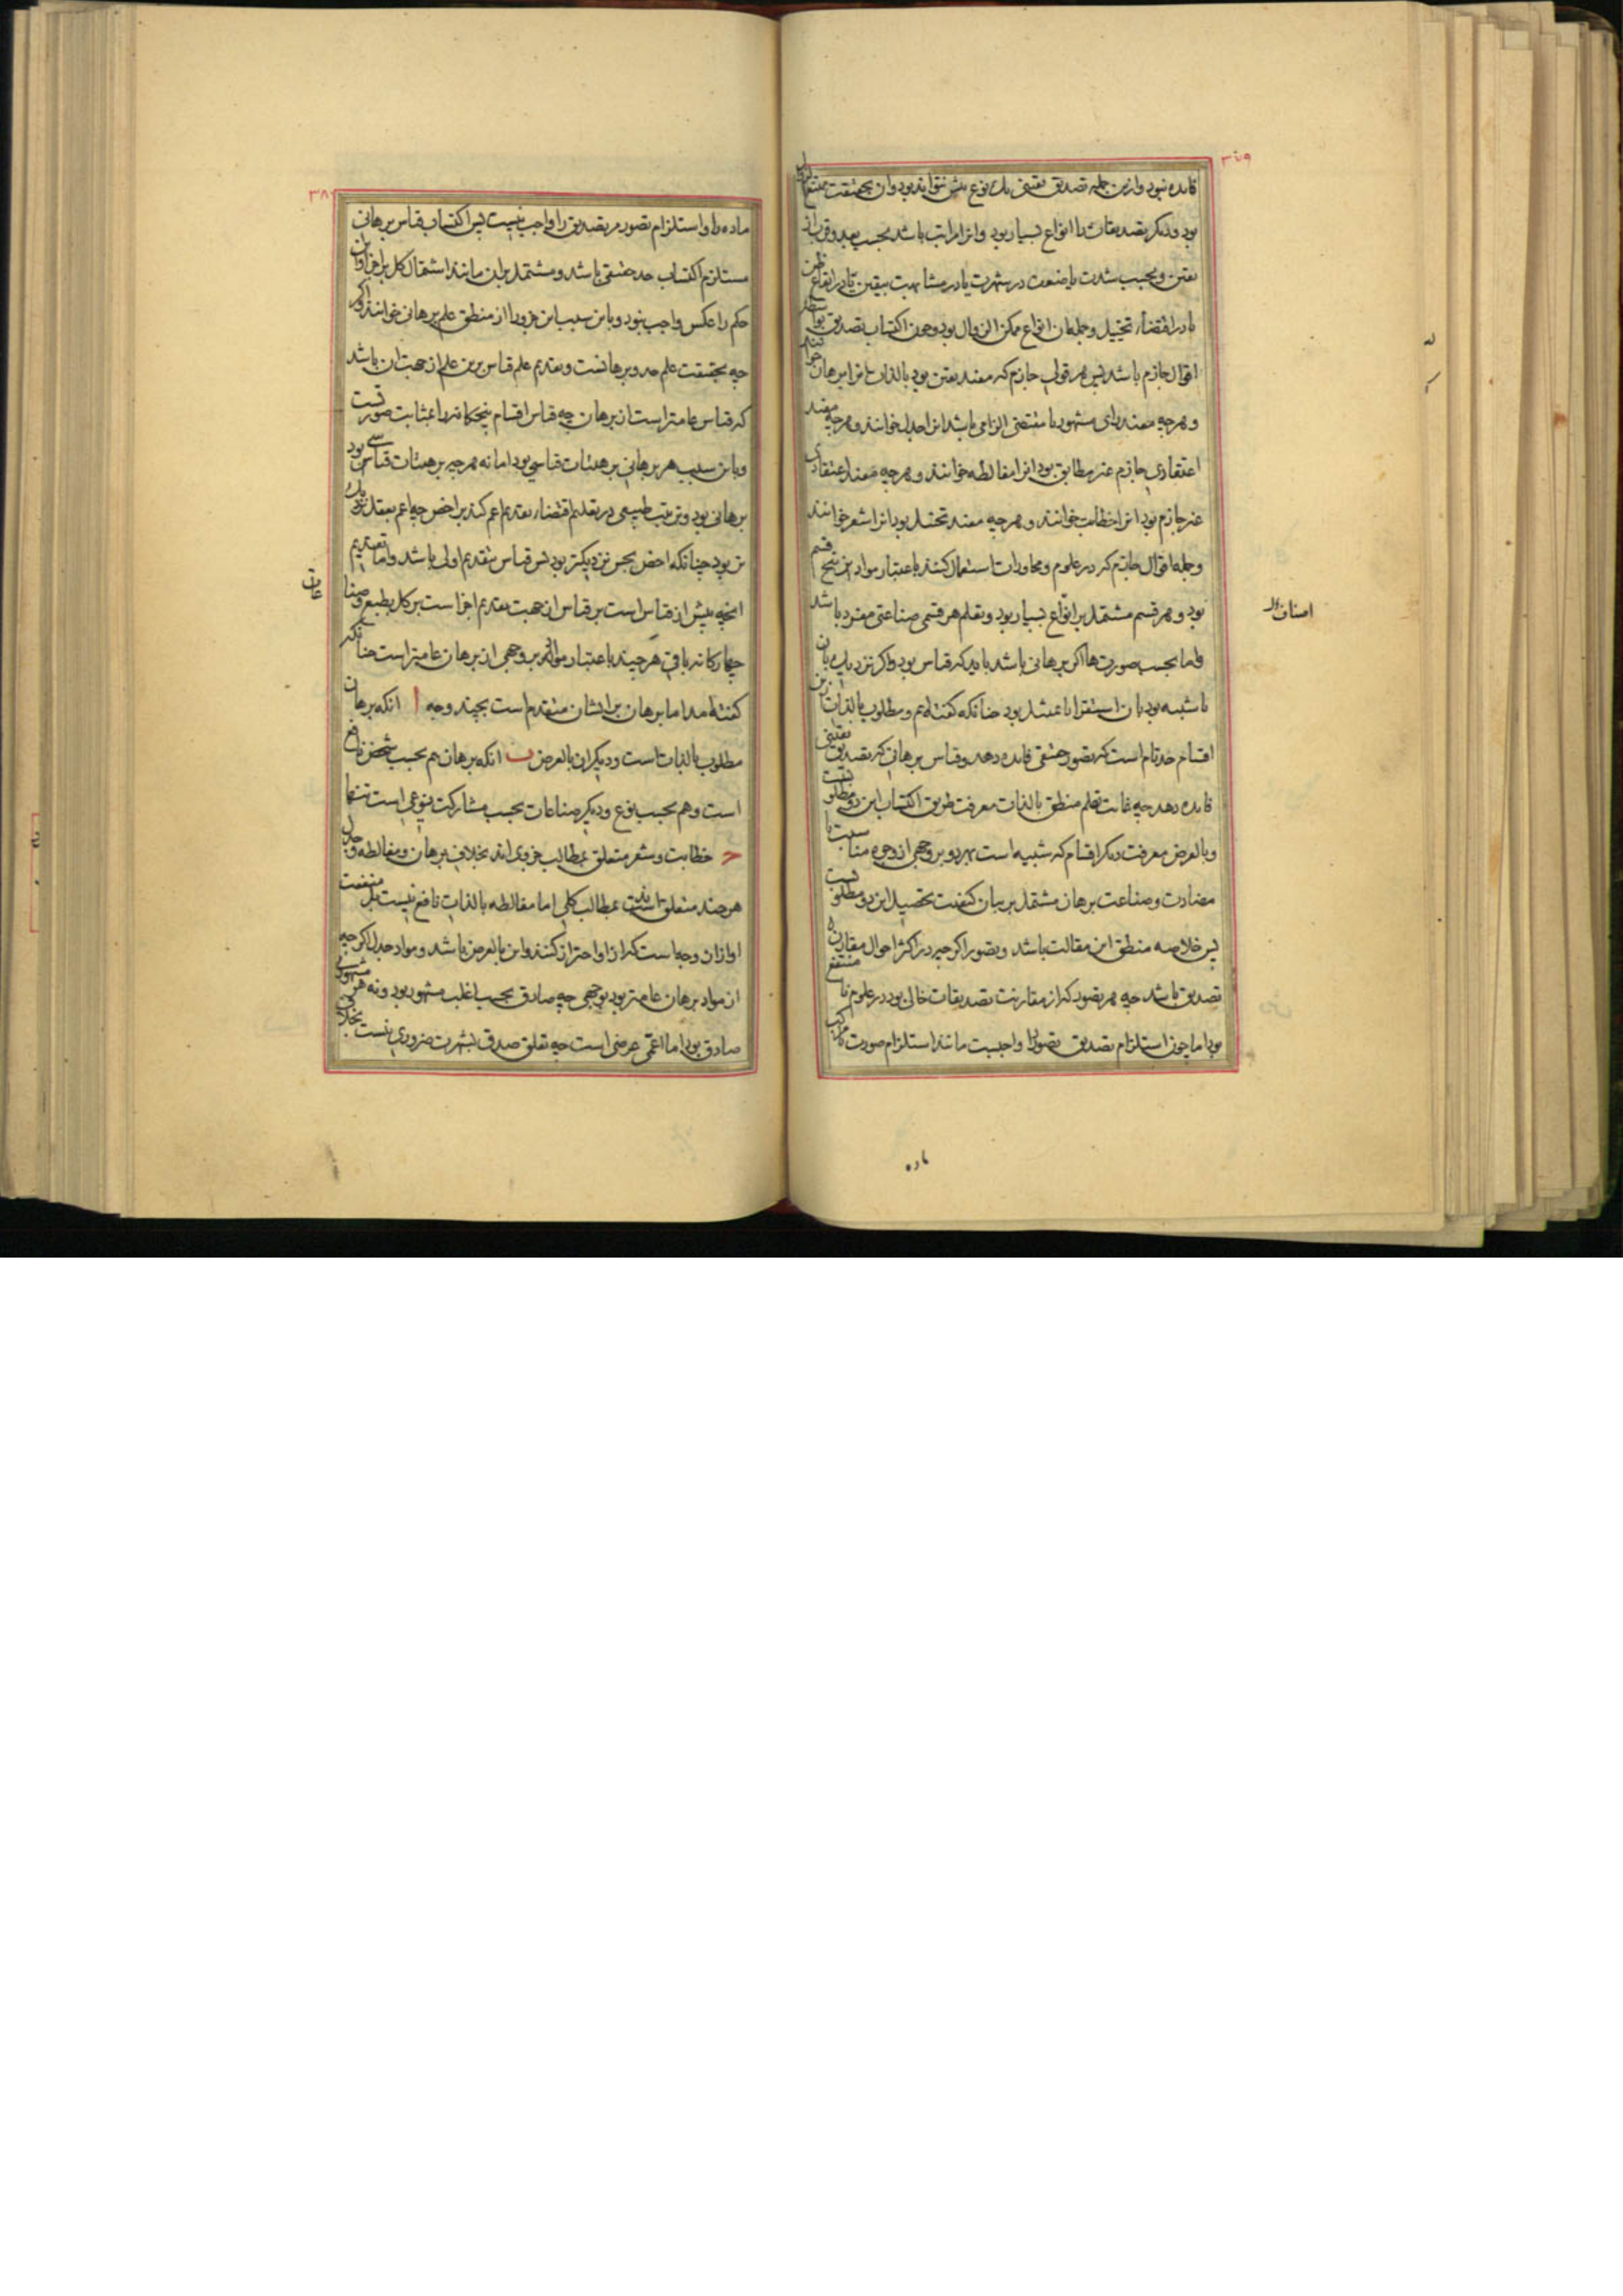 ۳۷۹
فایده نبود و ازین جمله تصدیق یقینی یک نوع بیش نتواند بود و آن بحقیقت ممتنع الزوال
بود و دیگر تصدیقات را انواع بسیار بود و آنرا مراتب باشد بحسب بعد و قرب از
یقین و بحسب شدت یا ضعف در شهرت یا در مشابهت بیقین یا در ایقاع ظن
یا در اقتضاء تخییل و جمله آن انواع ممکن الزوال بود و چون اکتساب تصدیق بواسطه
اقوال جازم باشد پس هر قولی جازم که مفید یقین بود بالذات آنرا برهان خوانند
و هر چه مفید رای مشهور یا مقتضی الزامی باشد آنرا جدل خوانند و هر چه مفید
اعتقادی جازم غیر مطابق بود آنرا مغالطه خوانند و هر چه مفید اعتقادی
غیر جازم بود آنرا خطابت خوانند و هر چه مفید تخییل بود آنرا شعر خوانند
و جمله اقوال جازم که در علوم و محاورات استعمال کنند باعتبار مواد این پنج قسم
بود و هر قسم مشتمل بر انواع بسیار بود و تعلم هر قسمی صناعتی مفرد باشد
اصناف
و اما بحسب صورتها اگر برهانی باشد باید که قیاس بود و اگر نزدیک بآن
یا شبیه بود بآن استقرا یا تمثیل بود چنانکه گفته‌ایم و مطلوب بالذات ازین
اقسام حد تام است که تصور حقیقی فایده دهد و قیاس برهانی که تصدیق یقینی
فایده دهد چه غایت تعلم منطق بالذات معرفت طریق اکتساب این دو مطلوبست
و بالعرض معرفت دیگر اقسام که شبیه است بهر دو بر وجهی از وجوه مناسبت یا
مضادت و صناعت برهان مشتمل بر بیان کیفیت تحصیل این دو مطلوبست
پس خلاصه منطق این مقالت باشد و تصور اگر چه در اکثر احوال مقارن
تصدیق باشد چه هر تصور که از مقارنت تصدیقات خالی بود در علوم نامنتفع
بود اما چون استلزام تصدیق تصور را واجبست مانند استلزام صورت مرکب
ماده
۳۸۰
ماده را و استلزام تصور مر تصدیق را واجب نیست پس اکتساب قیاس برهانی
مستلزم اکتساب حد حقیقی باشد و مشتمل بر آن مانند اشتمال کل بر اجزا و این
حکم را عکس واجب نبود و باین سبب این جزو را از منطق علم برهانی خوانند اگر
چه بحقیقت علم حد و برهانست و تقدیم علم قیاس برین علم از جهت آن باشد
که قیاس عامتر است از برهان چه قیاس اقسام پنجگانه را بمثابت صورتست
و باین سبب هر برهانی بر هیئات قیاسی بود اما نه هر چه بر هیئات قیاسی بود
برهانی بود و ترتیب طبیعی در تعلیم اقتضاء تقدیم اعم کند بر اخص چه اعم بعقل نزدیک
تر بود چنانکه اخص بحس نزدیکتر بود پس قیاس بتقدیم اولی باشد و اما تقدیم
آنچه پیش از قیاس است بر قیاس از جهت تقدیم اجزا است بر کل بطبع و صنا
عات
چهارگانه باقی هر چند باعتبار مواد بر وجهی از برهان عامتر است چنانکه
گفته آمد اما برهان بر ایشان متقدم است بچند وجه ا آنکه برهان
مطلوب بالذات است و دیگران بالعرض ب آنکه برهان هم بحسب شخص نافع
است و هم بحسب نوع و دیگر صناعات بحسب مشارکت نوعی است تنها
ج خطابت و شعر متعلق بمطالب جزوی اند بخلاف برهان و مغالطه و جدل
هر چند متعلق بمطالب کلی اما مغالطه بالذات نافع نیست بل منفعت
او از آن وجه است که از او احتراز کنند و این بالعرض باشد و مواد جدل اگر چه
از مواد برهان عامتر بود بوجهی چه صادق بحسب اغلب مشهور بود و نه هر مشهوری
صادق بود اما اعمی عرضی است چه تعلق صدق بشهرت ضروری نیست بخلاف